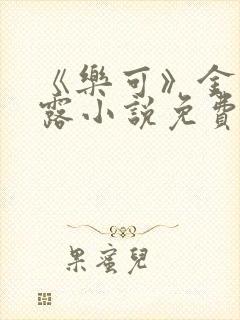 《樂可》金
露小說免費
果蜜兒